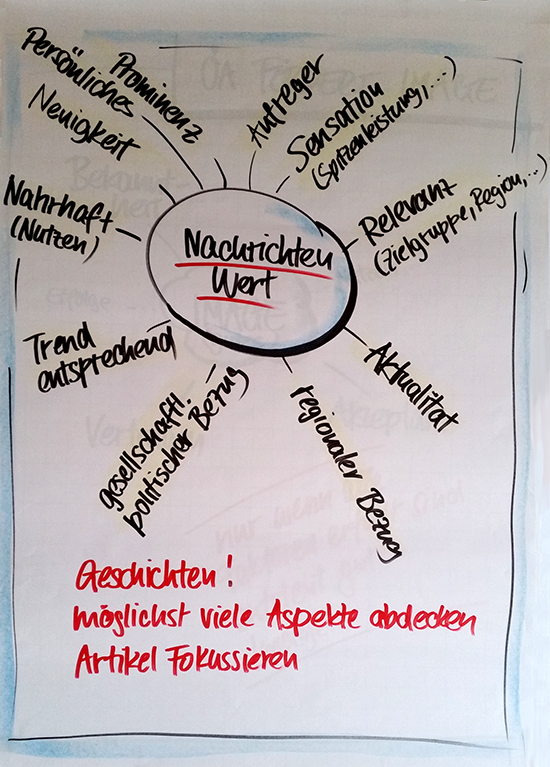 Persönliches
Prominenz
Neuigkeit
Nahrhaft
(Nutzen)
Trend
entsprechend
gesellschaftl.
politischer Bezug
regionaler Bezug
Aktualität
Relevanz
(Zielgruppe, Region,...)
Sensation
(Spitzenleistung,...)
Aufreger
Nachrichten
Wert
Geschichten!
möglichst viele Aspekte abdecken
Artikel Fokussieren